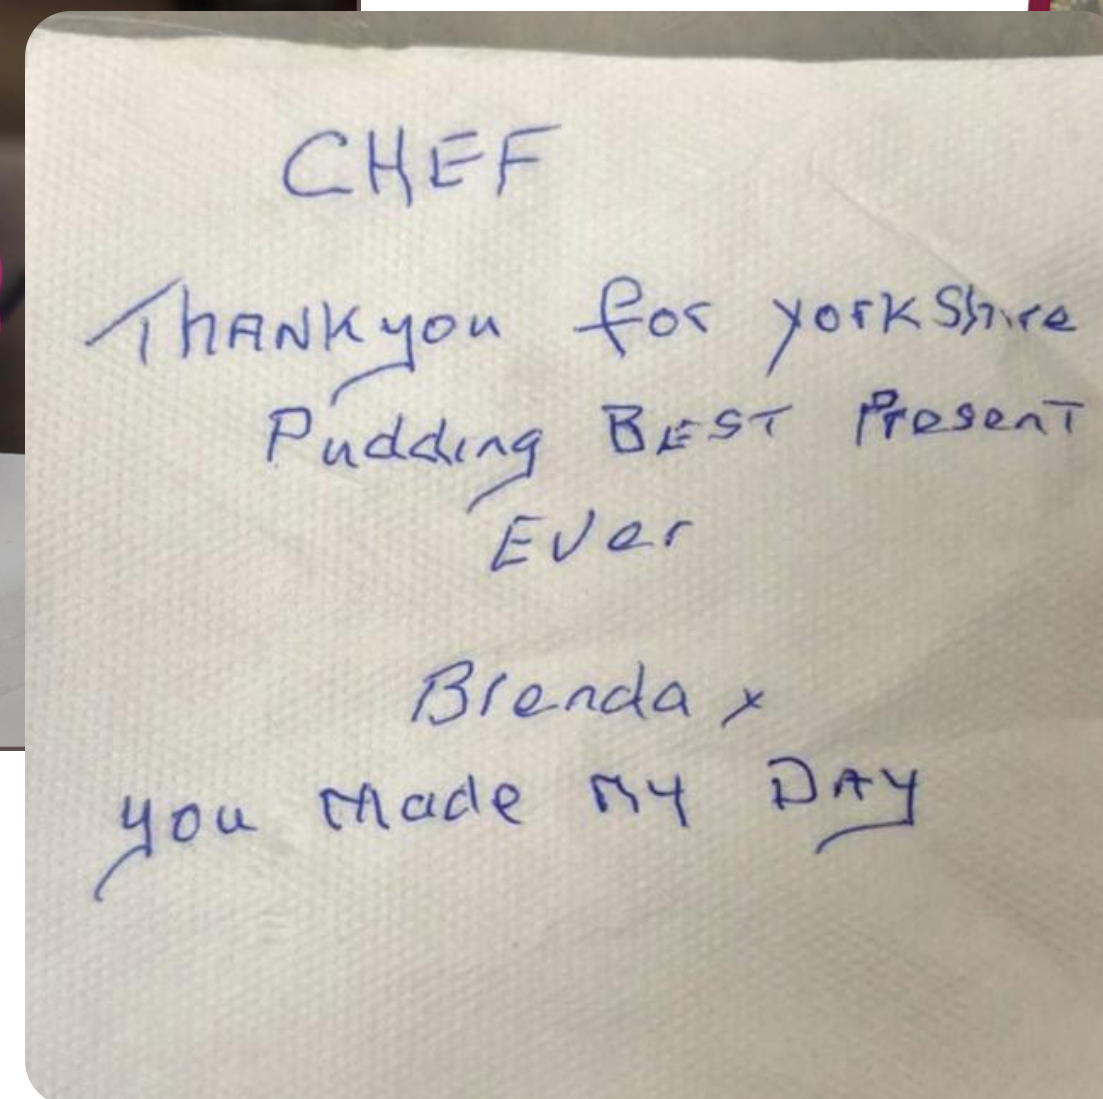 CHEF
ThANKyou for yorkShire
Pudding BEST Present
Ever
Brenda x
you Made MY DAy